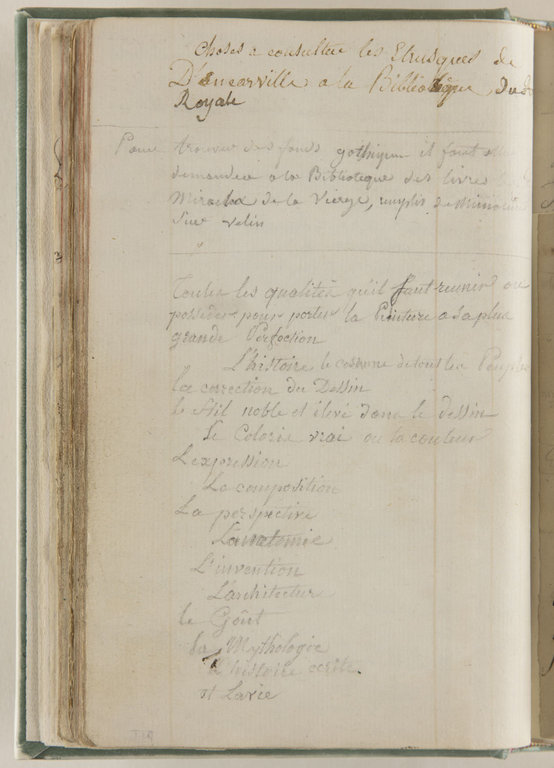 Choses a consulter les Etrusques de
D'ancarville a la Biblioteque du
Royale
Pour trouver des fonds gothique il faut
demander a la Biblioteque des livres
Miracles de la Vierge, remplis de Miniature
Sur velin
Toutes les qualités qu'il faut reunir ou
posseder pour porter la Peinture a sa plus
grande Perfection
L'histoire le costume de tout les Peuples
la correction du Dessin
le Stil noble et élevé dans le dessin
Le Coloris vrai ou la couleur
L'expression
La composition
La perspective
L'anatomie
L'invention
L'architectur
le Goût
la Mythologie
L'histoire
et